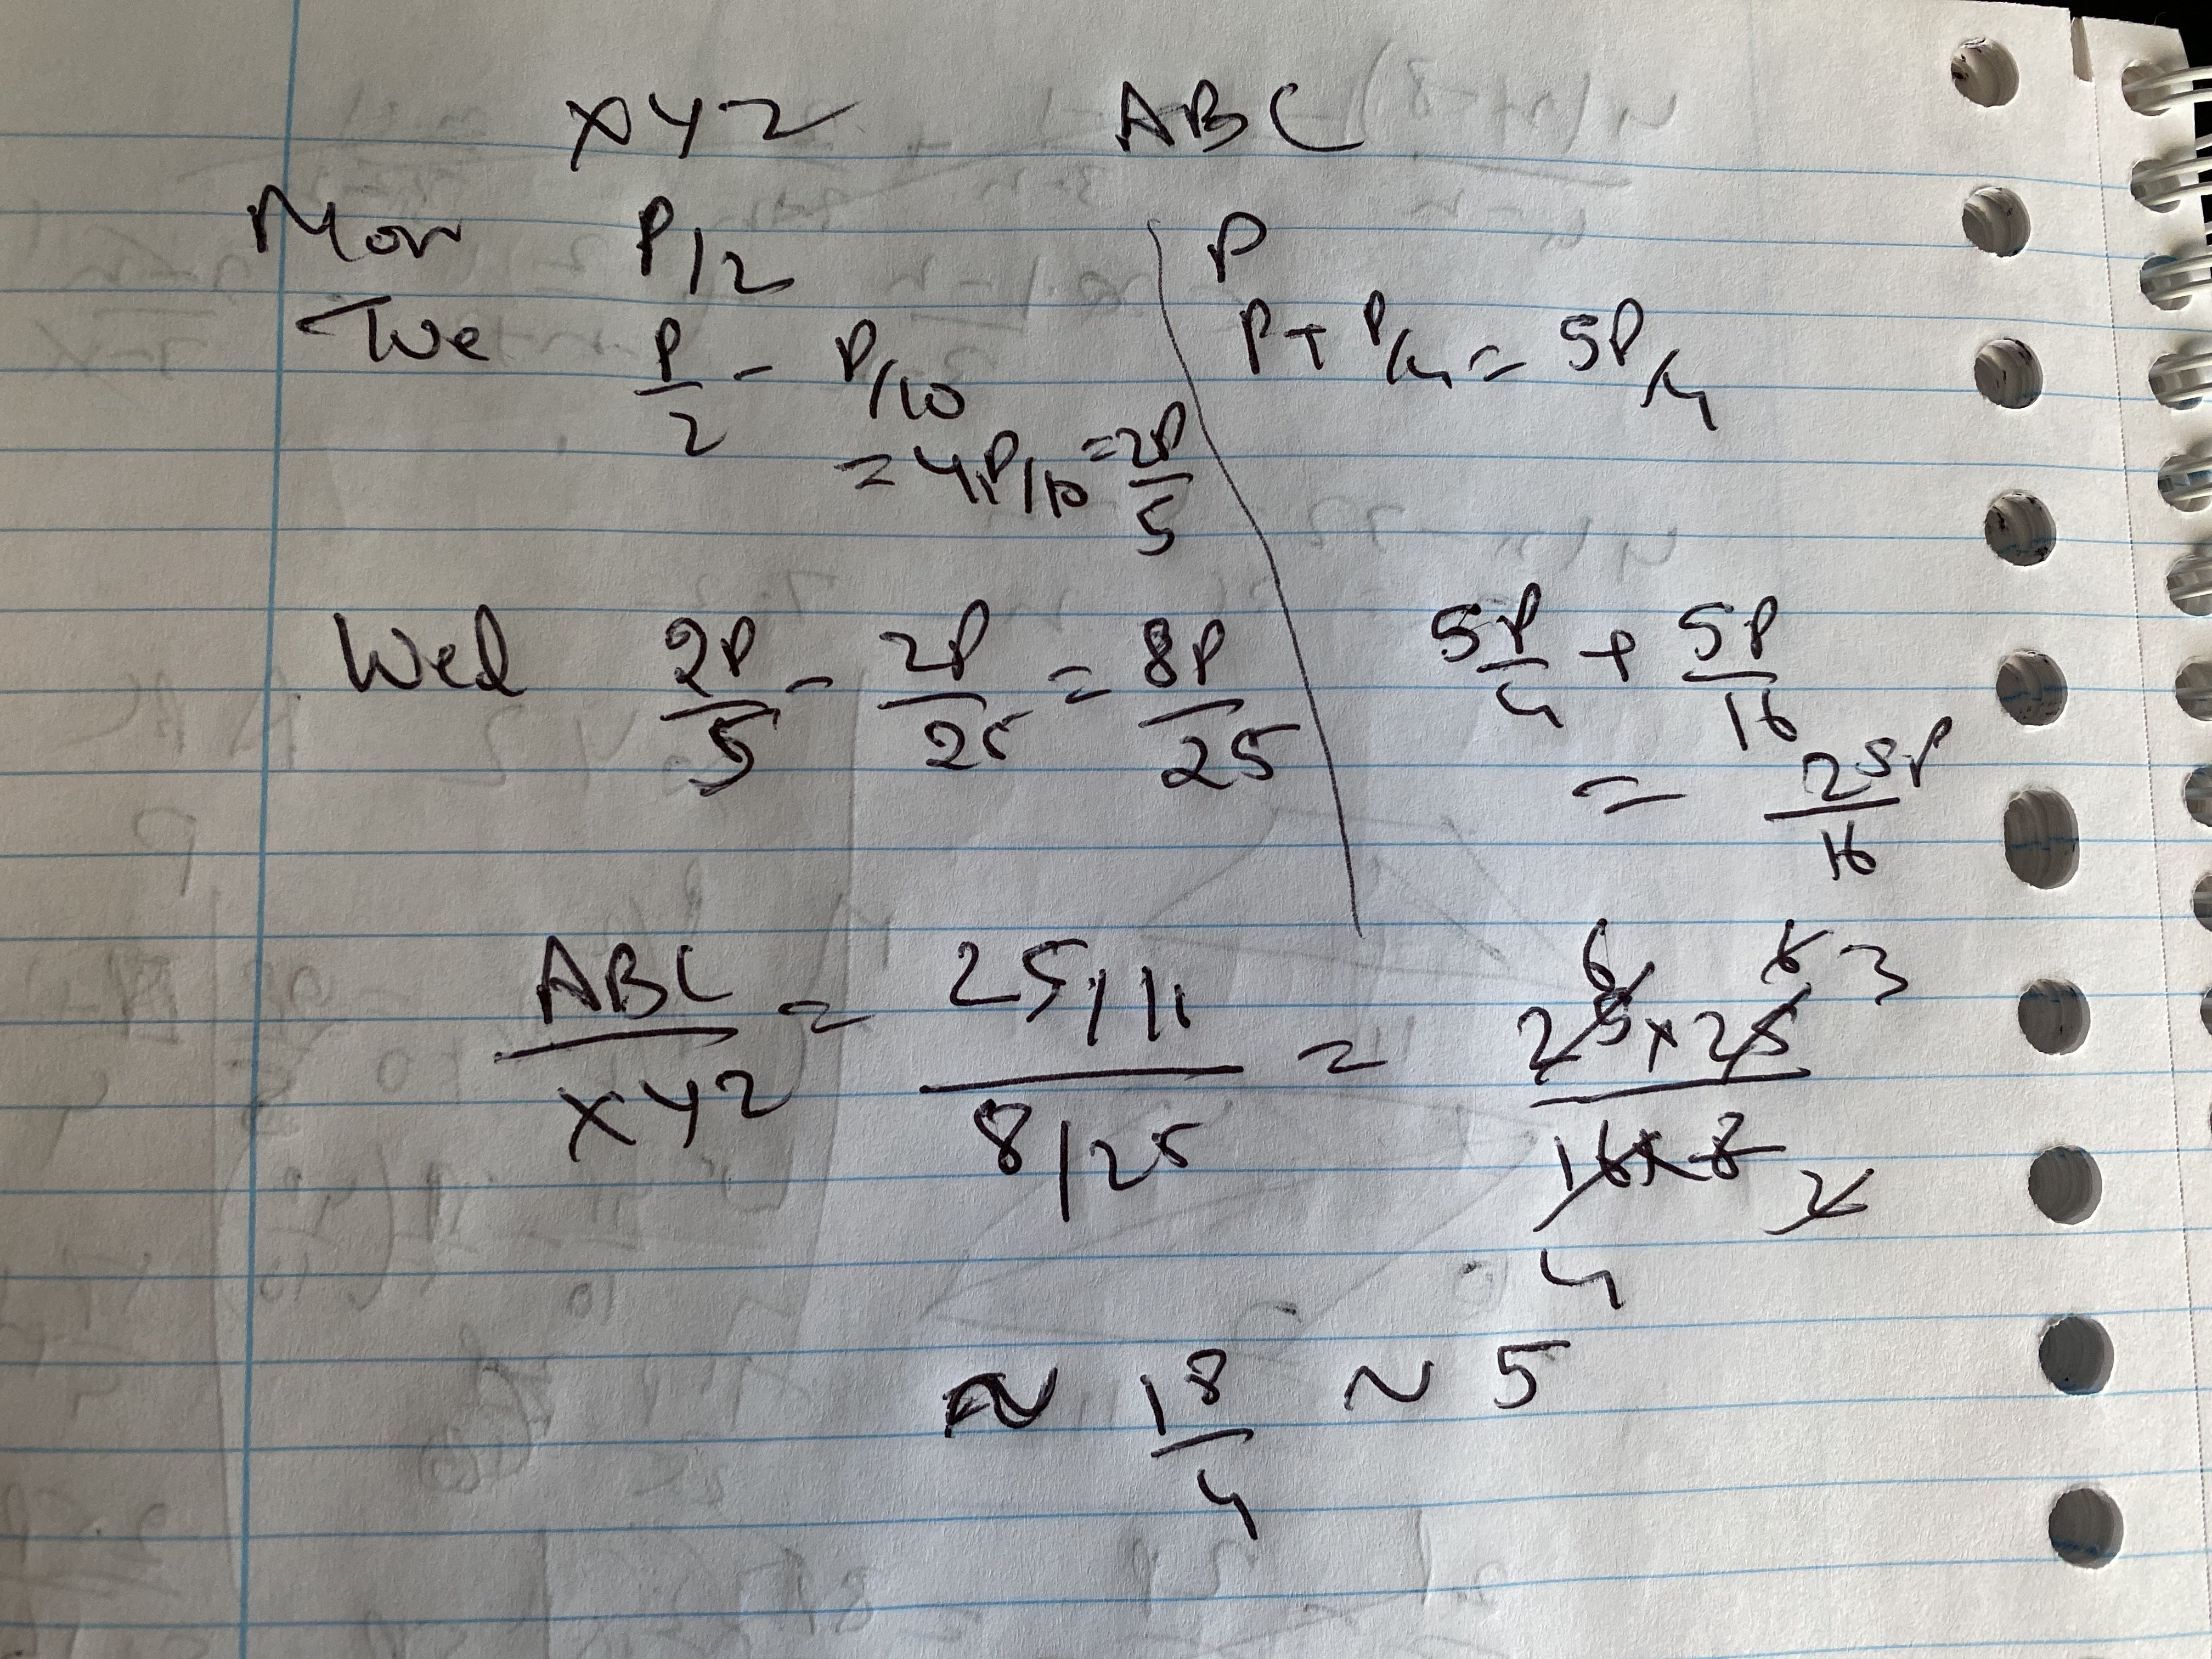 XYZ ABC
Mon P/2 P
Tue P/2 - P/10 P + P/4 = 5P/4
= 4P/10 = 2P/5
Wed 2P/5 - 2P/25 = 8P/25 5P/4 + 5P/16
= 25P/16
ABC/XYZ = 25/11 / 8/25 = 25x25 / 16x8
6 6 3
2
4
≈ 18/4 ~ 5